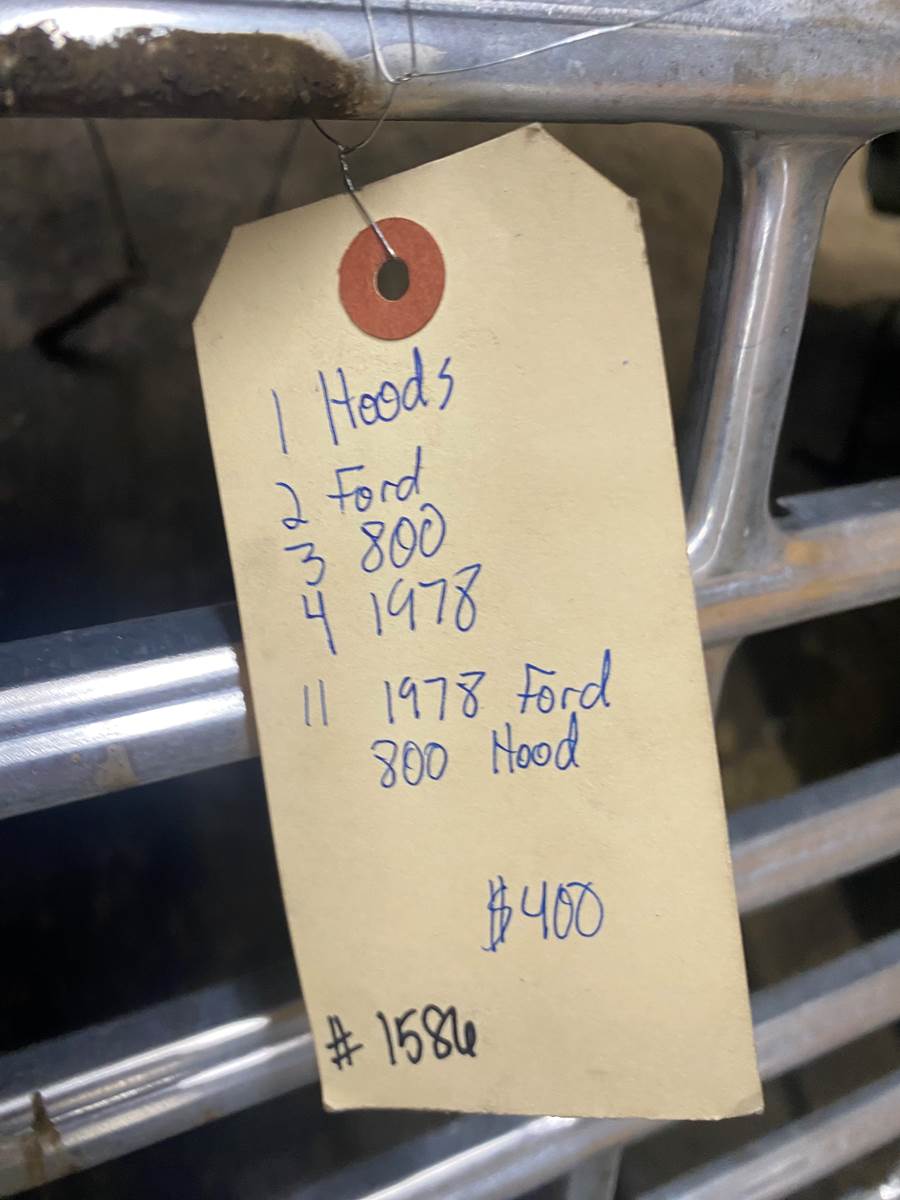 1 Hoods
2 Ford
3 800
4 1978
11 1978 Ford
800 Hood
$400
# 1586